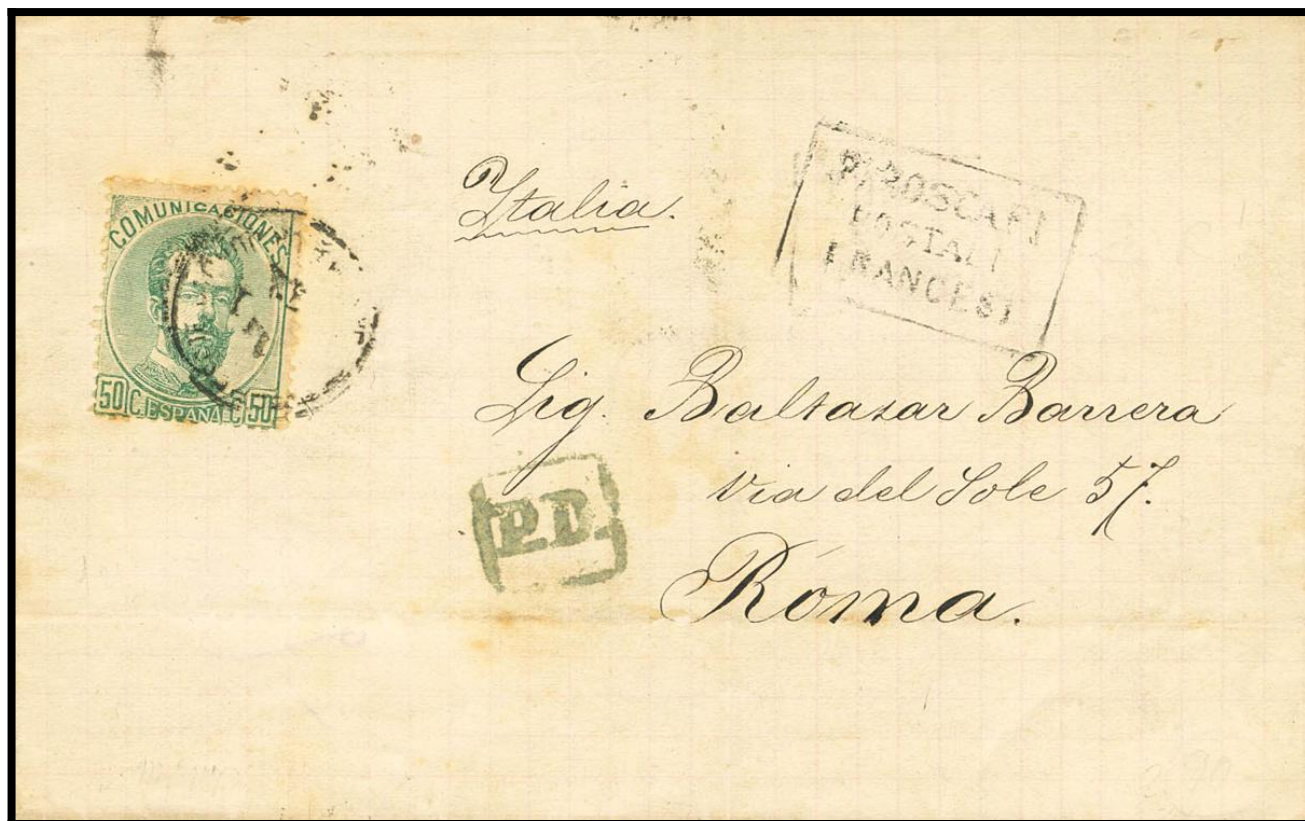 COMUNICACIONES
50 C. ESPAÑA. C 50
Italia.
PIROSCAFI
POSTALI
FRANCESI
Sig. Baltasar Barrera
via del Sole 57.
P.D.
Roma.